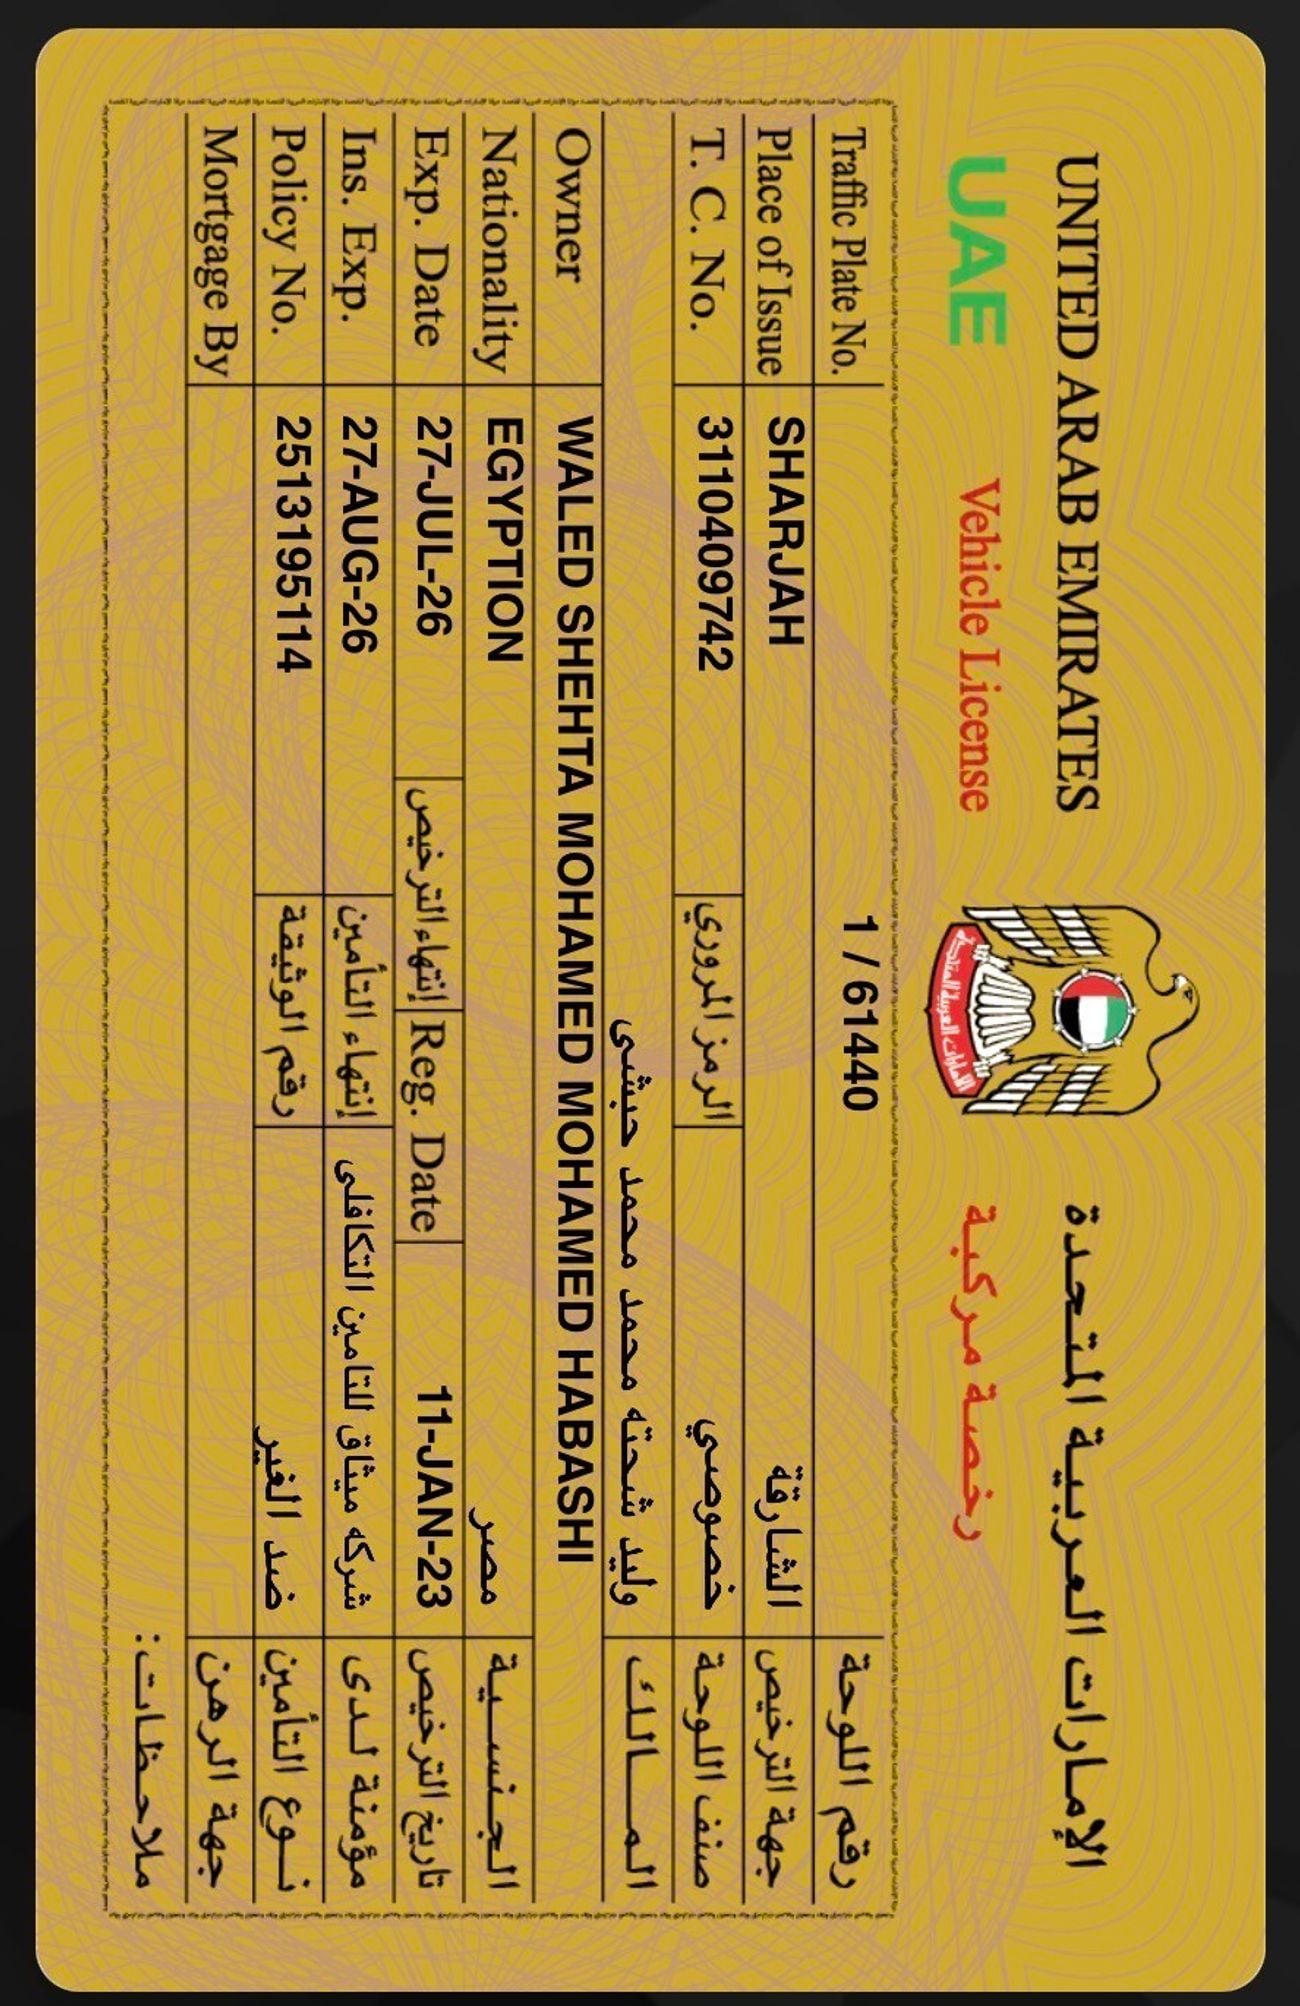 UNITED ARAB EMIRATES الإمارات العربية المتحدة
UAE Vehicle License رخصة مركبة
Traffic Plate No. 1 / 61440 رقم اللوحة
Place of Issue SHARJAH الشارقة جهة الترخيص
T. C. No. 3110409742 الرمز المروري خصوصي صنف اللوحة
وليد شحته محمد محمد حبشى المالك
Owner WALED SHEHTA MOHAMED MOHAMED HABASHI
Nationality EGYPTION مصر الجنسية
Exp. Date 27-JUL-26 إنتهاء الترخيص Reg. Date 11-JAN-23 تاريخ الترخيص
Ins. Exp. 27-AUG-26 إنتهاء التأمين شركه ميثاق للتامين التكافلى مؤمنة لدى
Policy No. 2513195114 رقم الوثيقة ضد الغير نوع التأمين
Mortgage By جهة الرهن
ملاحظات: